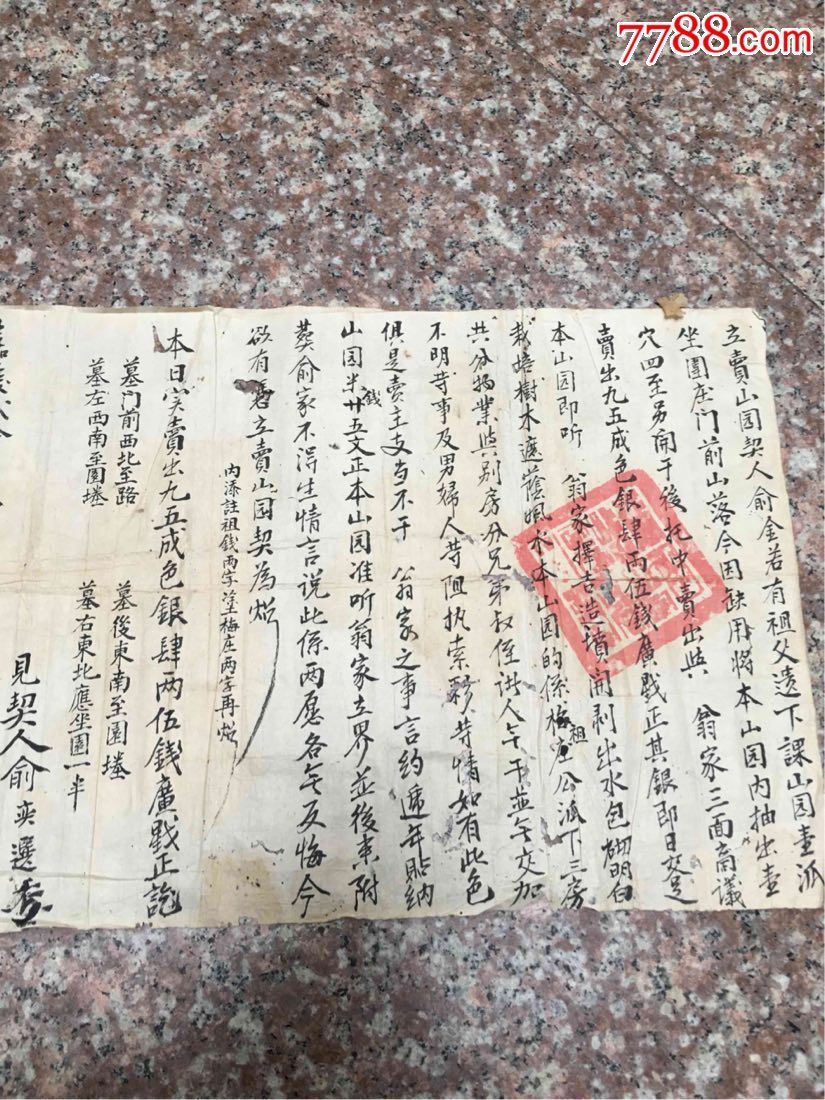 7788.com
立賣山园契人俞金若有祖父遺下課山园壹派
坐圍庄門前山落今因缺用將本山园内抽出壹
穴四至另開于後托中賣出與 翁家三面商議
賣出九五成色銀肆两伍錢廣戥正其銀即日交足
本山园即听 翁家擇吉造墳開剥出水包砌明白
栽培樹木遮蔭風水本山园的係梅祖公派下三房
共分物業與别房分兄弟叔侄諸人無干並無交加
不明苛事及男婦人苛阻执索苛情如有此色
俱是賣主支当不干 翁家之事言約遞年貼納
山园米錢廿五文正本山园准听翁家立界並後來附
葬俞家不得生情言說此係两愿各無反悔今
欲有憑立賣山园契為炤
内添註祖錢两字塗梅庄两字再炤
本日实賣出九五成色銀肆两伍錢廣戥正訖
墓門前西北至路 墓後東南至園墘
墓左西南至園墘 墓右東北應坐園一半
見契人俞奕選